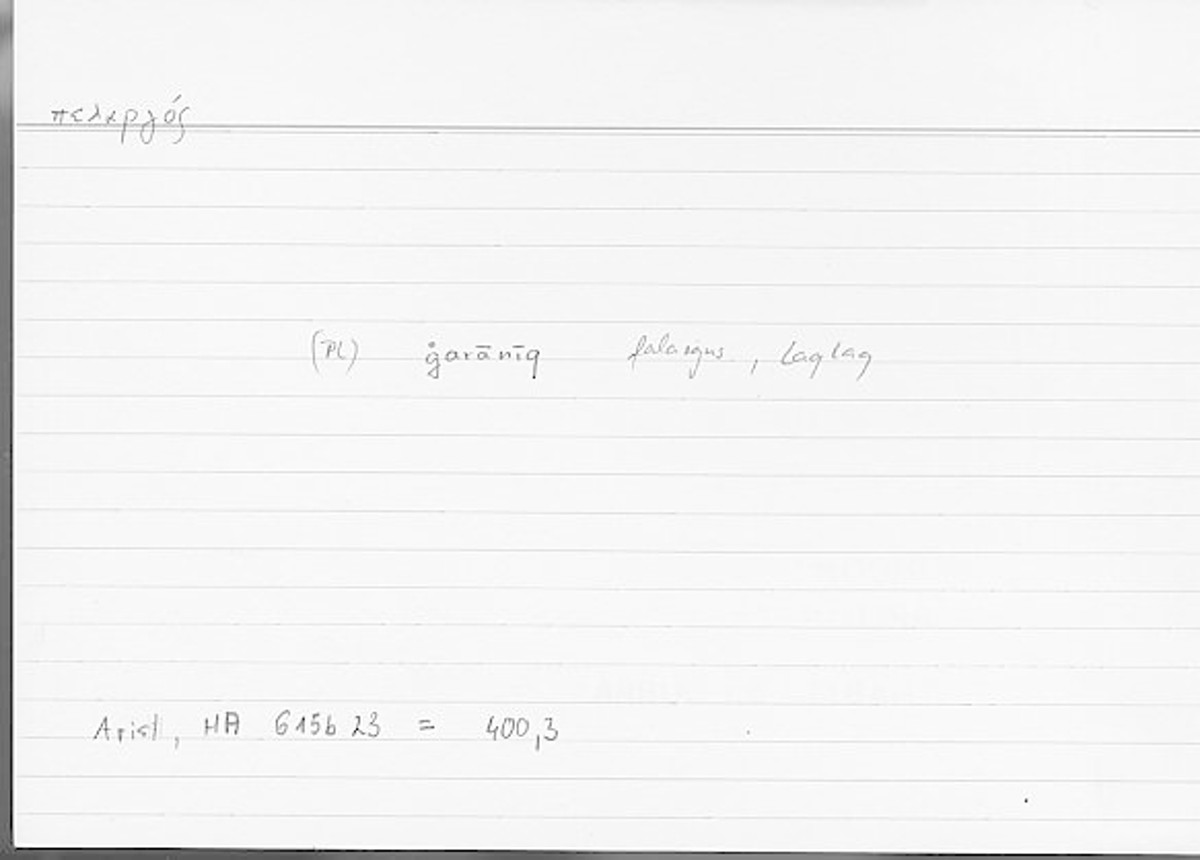 πελαργός
(Pl) ġarānīq falargus, laqlaq
Arist, HA 615b 23 = 400,3